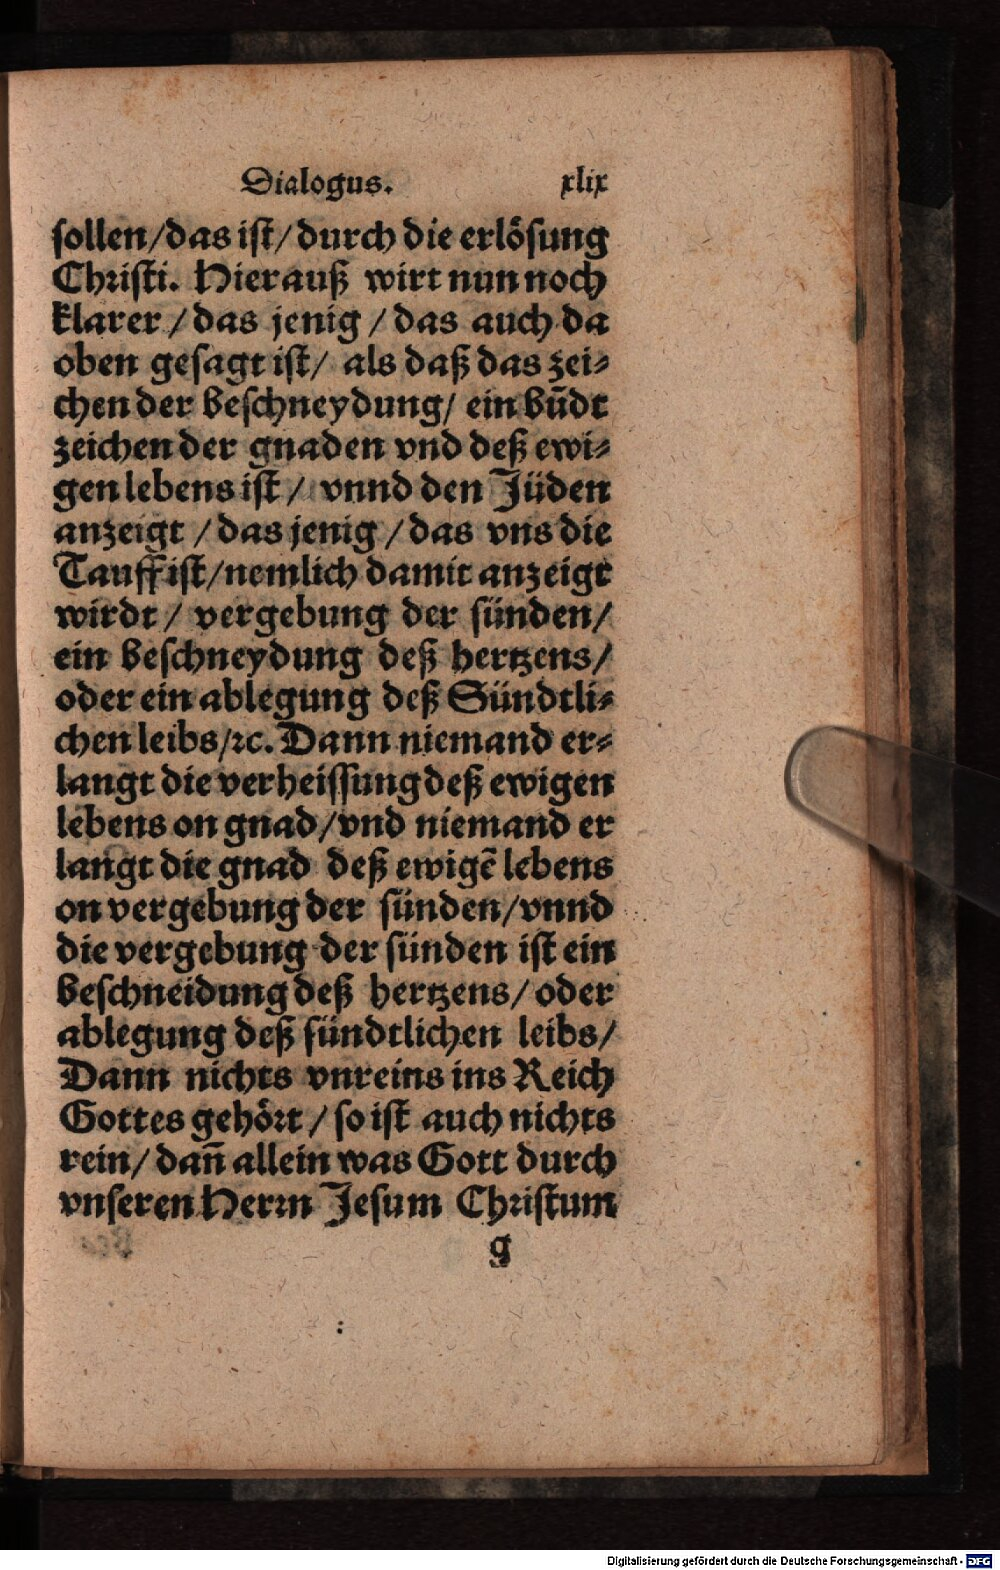 Dialogus. xlix
sollen/das ist/durch die erlösung
Christi. Hierauß wirt nun noch
klarer/das jenig/das auch da
oben gesagt ist/als daß das zei⸗
chen der beschneydung/ein bũdt
zeichen der gnaden vnd deß ewi⸗
gen lebens ist/vnnd den Jüden
anzeigt/das jenig/das vns die
Tauff ist/nemlich damit anzeigt
wirdt/vergebung der sünden/
ein beschneydung deß hertzens/
oder ein ablegung deß Sündtli⸗
chen leibs/ꝛc. Dann niemand er⸗
langt die verheissung deß ewigen
lebens on gnad/vnd niemand er
langt die gnad deß ewigẽ lebens
on vergebung der sünden/vnnd
die vergebung der sünden ist ein
beschneidung deß hertzens/oder
ablegung deß sündtlichen leibs/
Dann nichts vnreins ins Reich
Gottes gehört/so ist auch nichts
rein/dañ allein was Gott durch
vnseren Herrn Jesum Christum
g
Digitalisierung gefördert durch die Deutsche Forschungsgemeinschaft - DFG